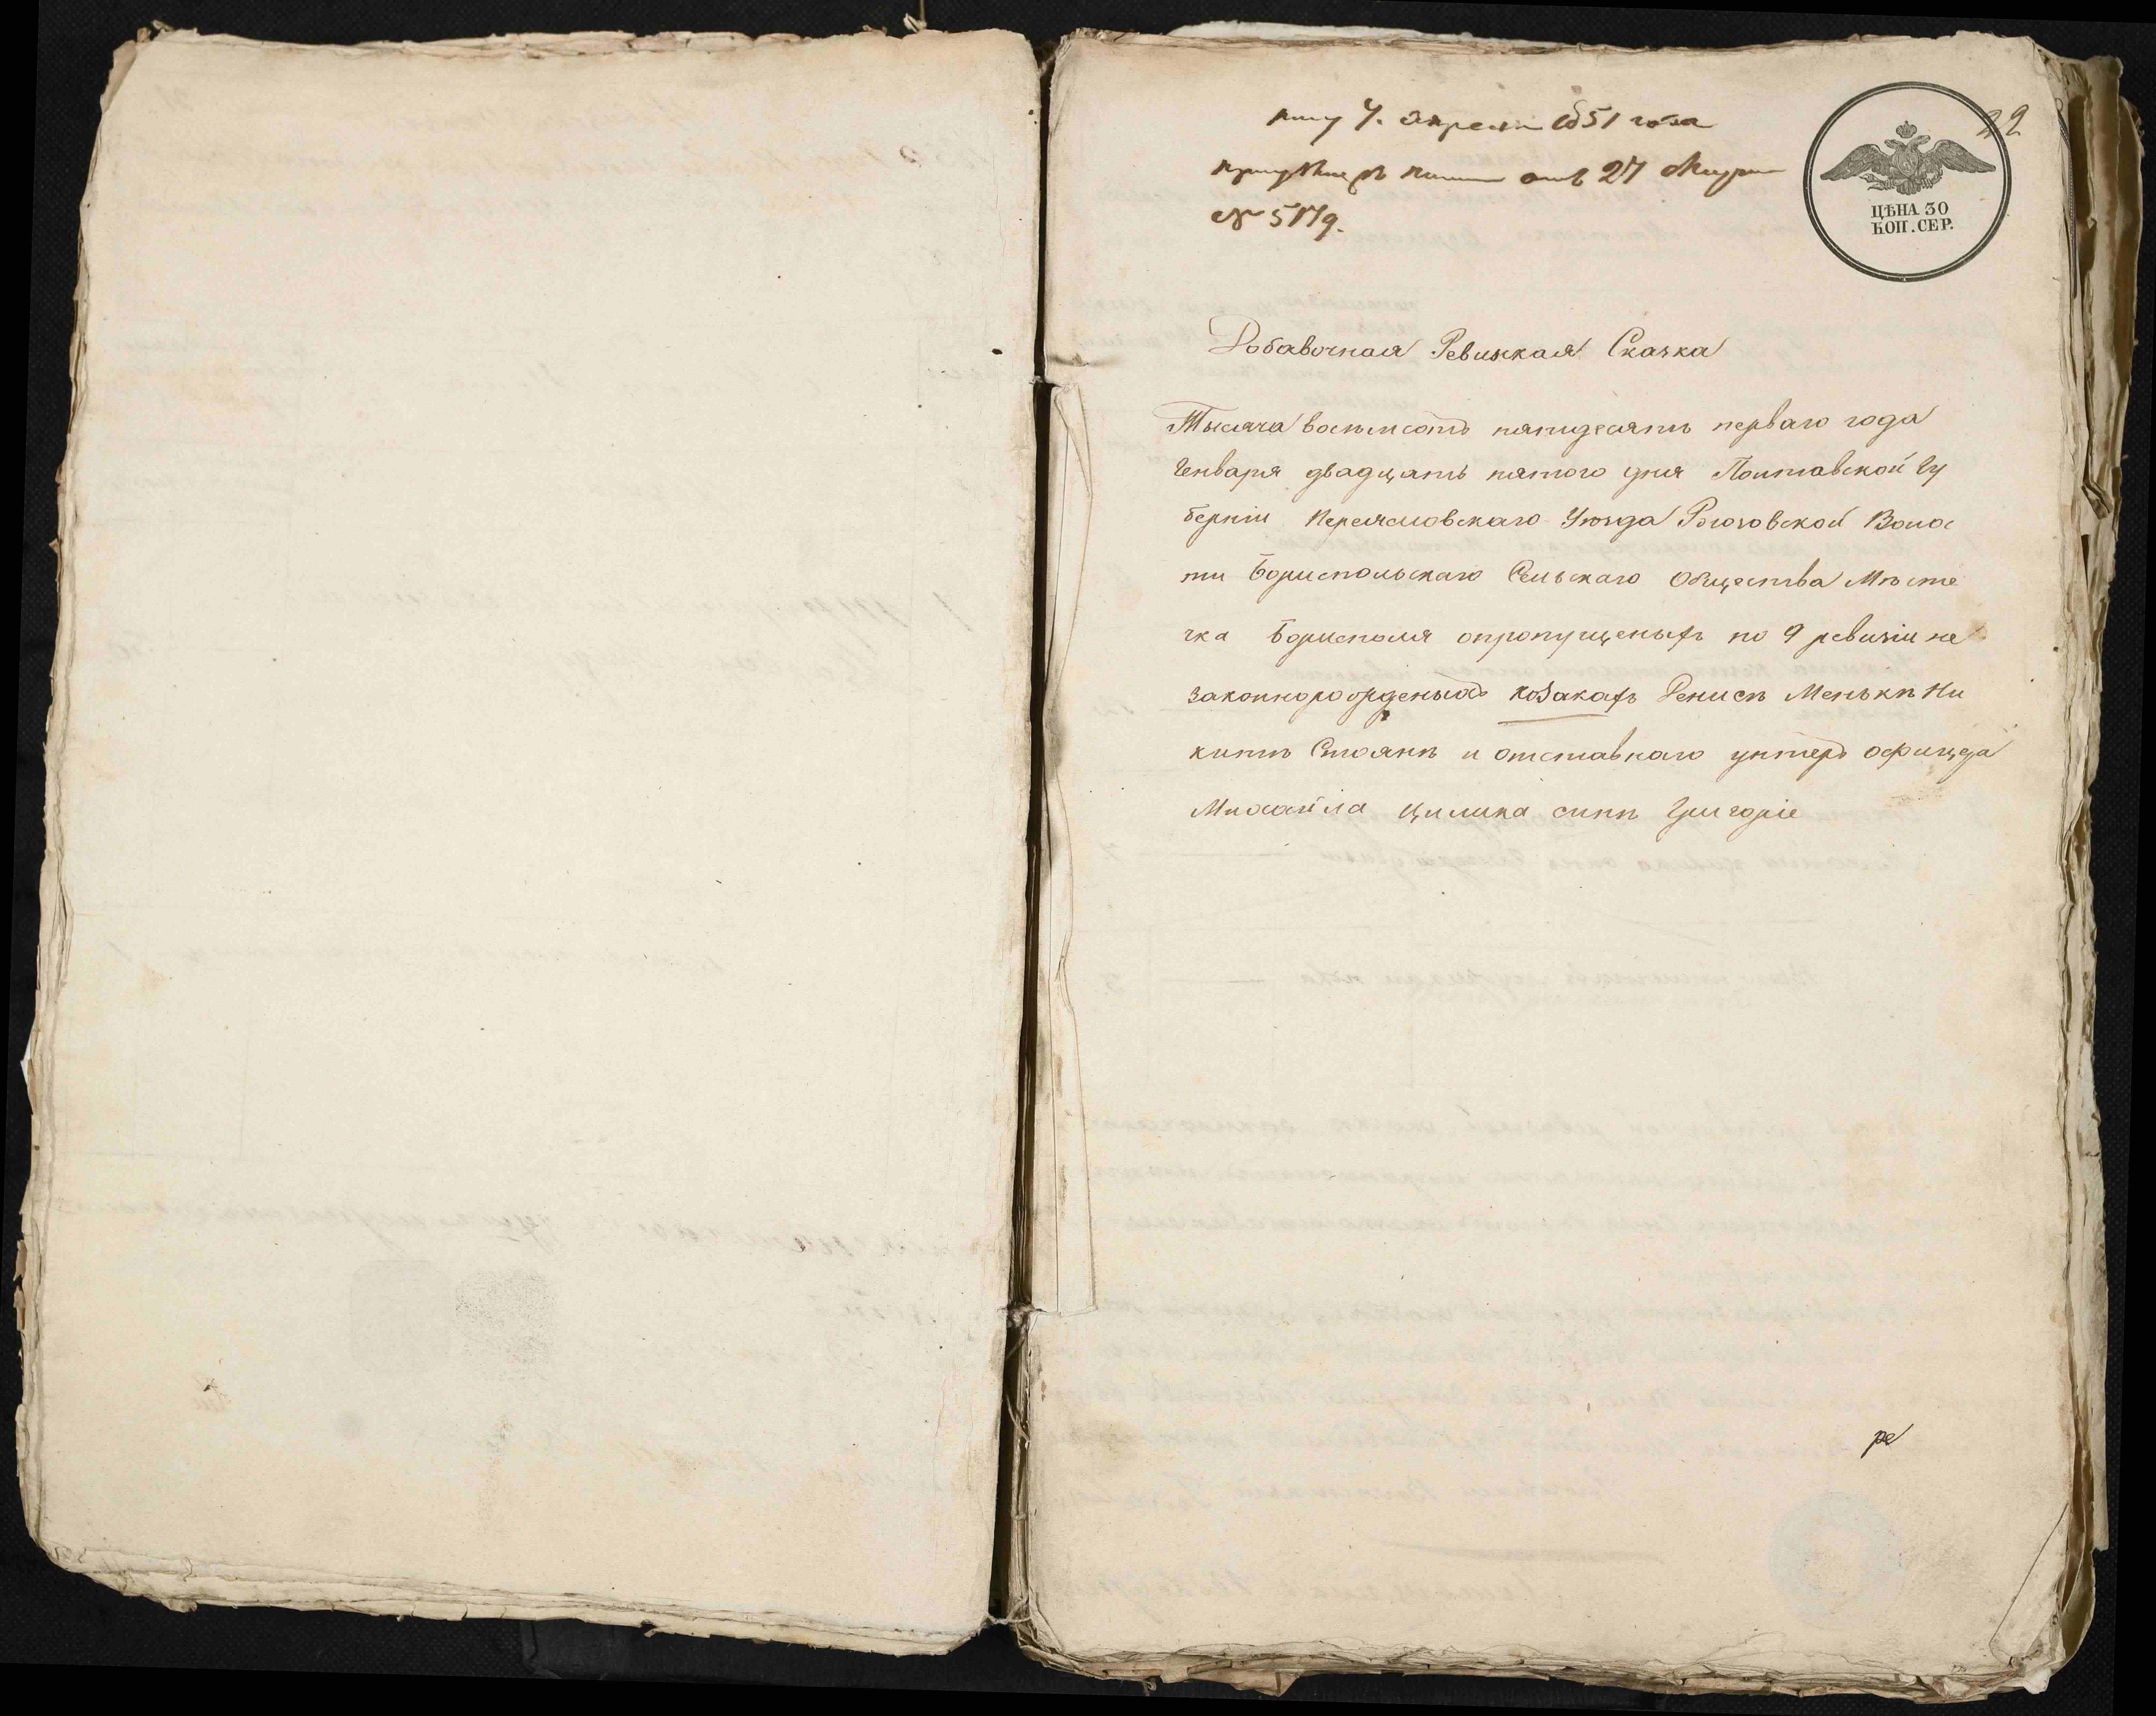 пол. 4. апреля 1851 года
при от 27 Марта
№ 5179.
22
ЦѢНА 30
КОП. СЕР.
Добавочная Ревизкая Сказка
Тысяча восемсотъ пятидесятъ перваго года
Генваря двадцать пятого дня Полтавской Гу
берніи Переяславскаго Уѣзда Рогозовской Волос
ти Бориспольскаго Сельскаго Общества Мѣсте
чка Борисполя опропущеныхъ по 9 ревизіи не
законнорожденыхъ козакахъ Денисѣ Менькѣ Ни
китѣ Стоянѣ и отставнаго унтеръ офицера
Михайла Цилика синѣ Григоріе
ре